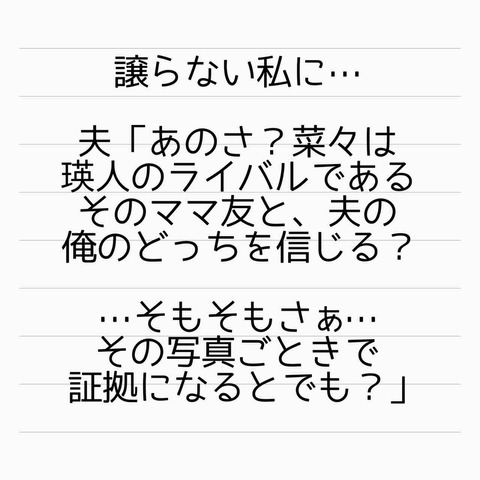 譲らない私に…
夫「あのさ？菜々は
瑛人のライバルである
そのママ友と、夫の
俺のどっちを信じる？
…そもそもさぁ…
その写真ごときで
証拠になるとでも？」